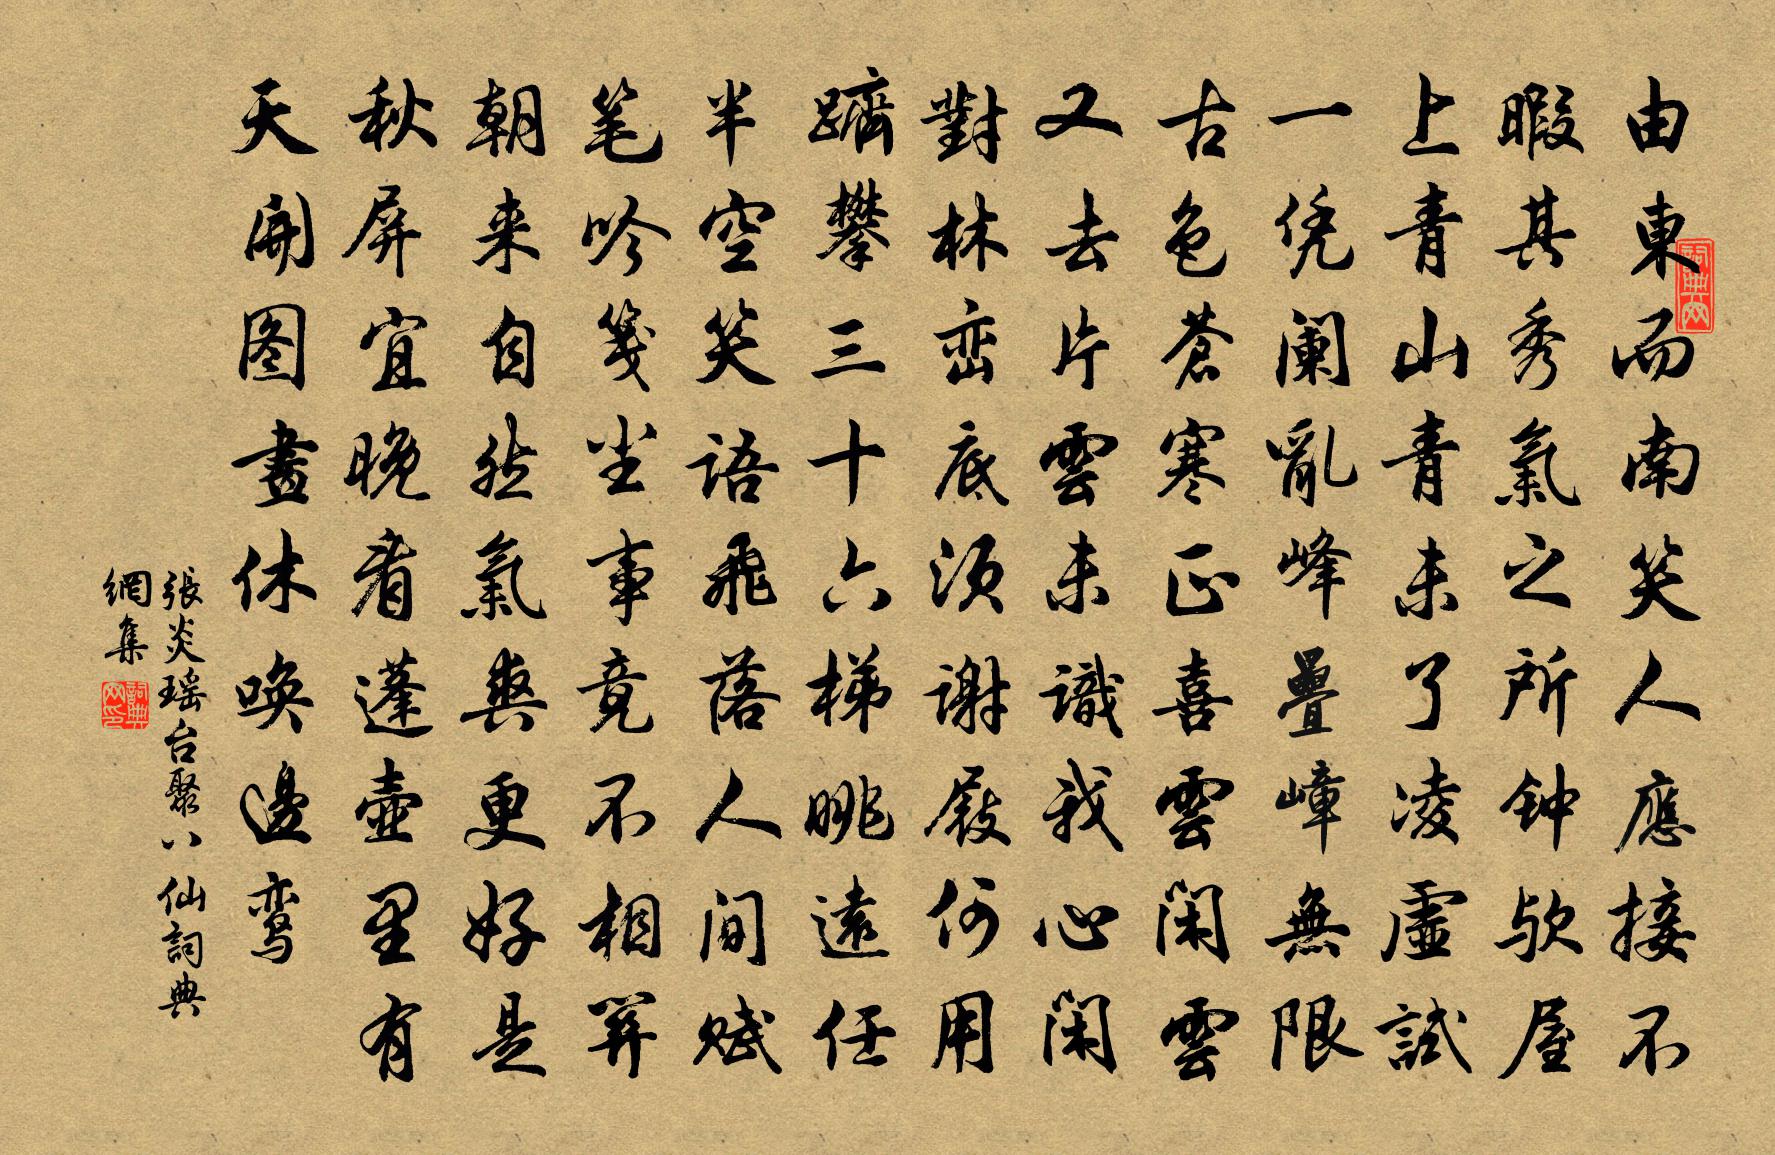 由東而南笑人應接不
暇其秀氣之所钟欤屋
上青山青未了凌虛試
一凭阑亂峰疊嶂無限
古色蒼寒正喜雲闲雲
又去片雲未識我心闲
對林峦底须谢屐何用
躋攀三十六梯眺遠任
半空笑語飛落人间赋
笔吟笺尘事竟不相關
朝来自然氣爽更好是
秋屏宜晚看蓬壶里有
天開图畫休唤邊鸾
張炎瑶台聚八仙詞典
網集
詞典網
詞典網印